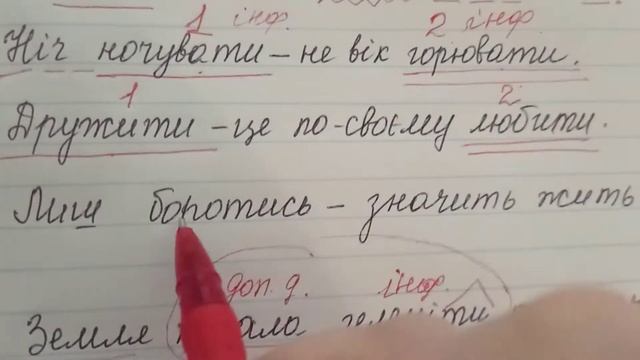 1 інф. 2 інф.
Ніч ночувати – не вік горювати.
1 2
Дружити – це по-своєму любити.
Лиш боротись – значить жить
доп. д. інф.
Земля